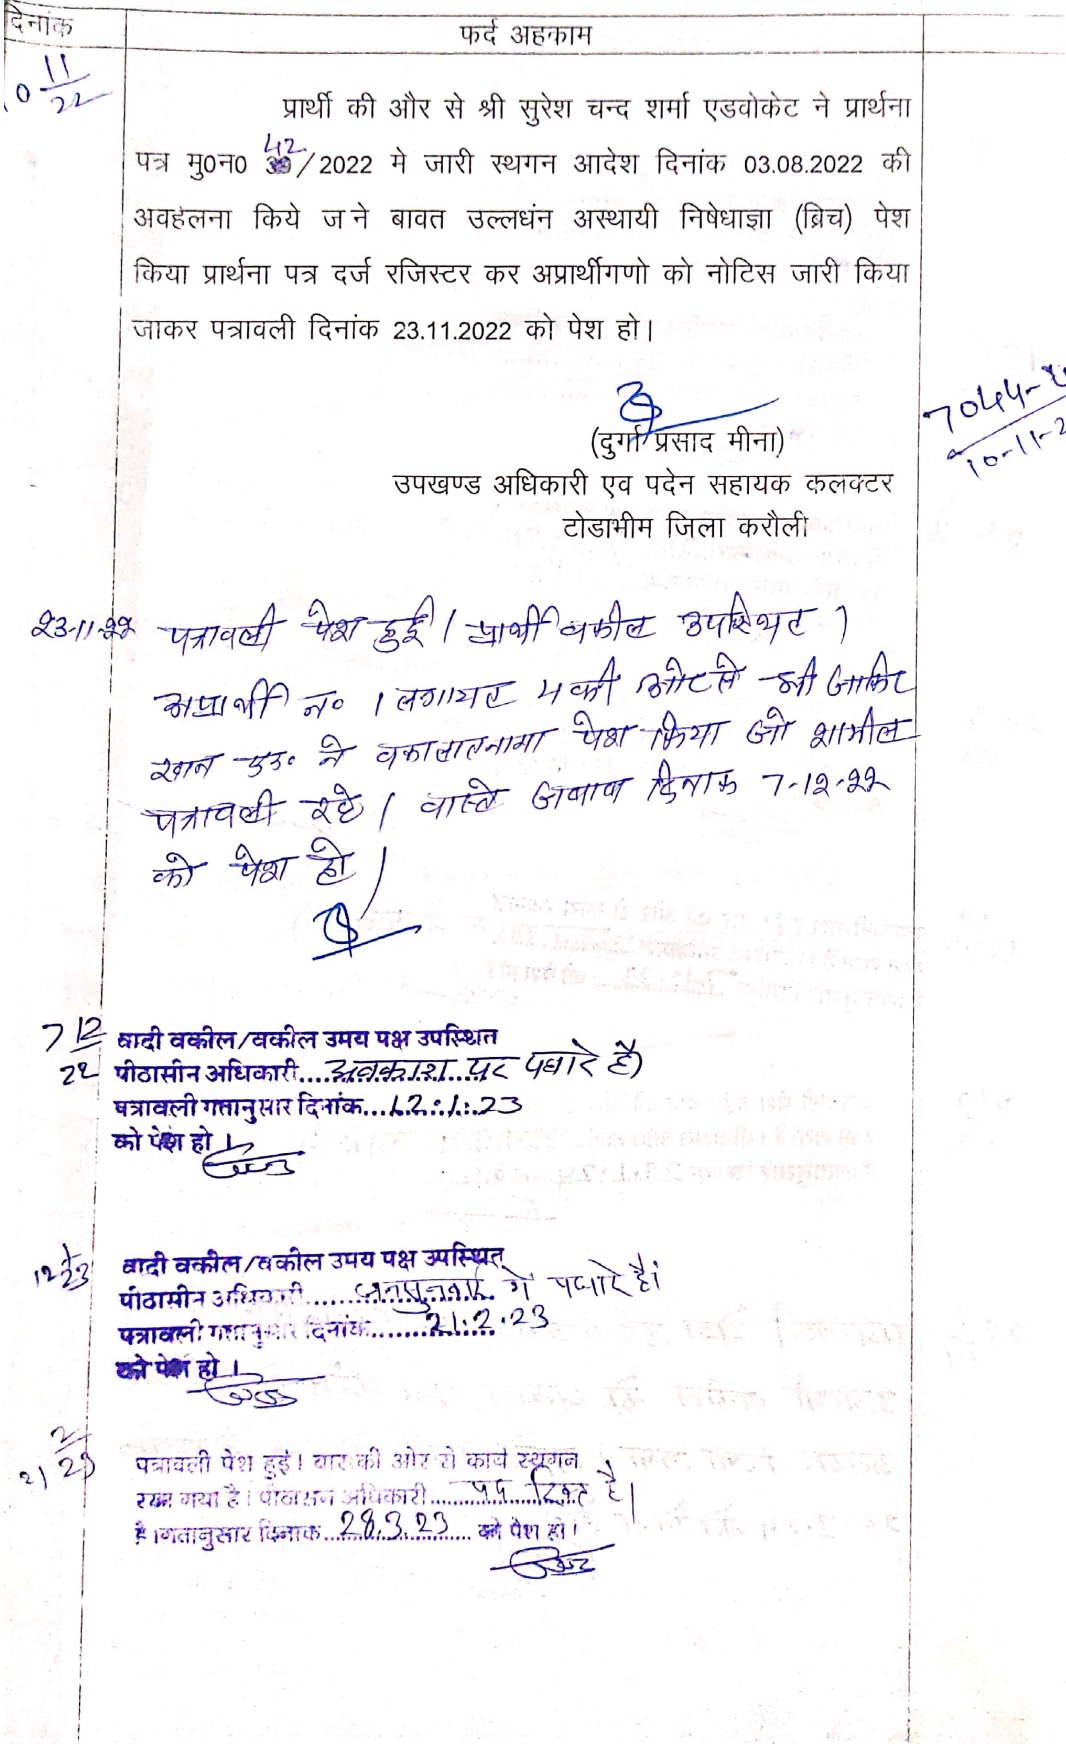 दिनांक
फर्द अहकाम
10 11/22
प्रार्थी की और से श्री सुरेश चन्द शर्मा एडवोकेट ने प्रार्थना
पत्र मु0न0 42/2022 मे जारी स्थगन आदेश दिनांक 03.08.2022 की
अवहलना किये जने बावत उल्लधंन अस्थायी निषेधाज्ञा (ब्रिच) पेश
किया प्रार्थना पत्र दर्ज रजिस्टर कर अप्रार्थीगणो को नोटिस जारी किया
जाकर पत्रावली दिनांक 23.11.2022 को पेश हो।
7044-
10-11-2
(दुर्गा प्रसाद मीना)
उपखण्ड अधिकारी एव पदेन सहायक कलक्टर
टोडाभीम जिला करौली
23-11-22 पत्रावली पेश हुई। प्रार्थी वकील उपस्थित।
अप्रार्थी न० 1 लगायत 4 की ओर से श्री जाकिर
खान एड० ने वकालतनामा पेश किया जो शामील
पत्रावली रहे। वास्ते जबाब दिनाक 7-12-22
को पेश हो।
7 12/22 वादी वकील/वकील उमय पक्ष उपस्थित
पीठासीन अधिकारी....अवकाश पर पधारे है।
पत्रावली गतानुसार दिनांक...12.1.23
को पेश हो।
12 1/23 वादी वकील/वकील उपय पक्ष उपस्थित्
पीठासीन अधिकारी.......जनसुनवाई में पधारे है।
पत्रावली गतानुसार दिनांक......21.2.23
को पेश हो।
21 2/23 पत्रावली पेश हुई। वार की ओर से कार्य स्थगन
रखा गया है। पीठासन अधिकारी.......है।
है। गतानुसार दिनाक...28.3.23...को पेश हो।